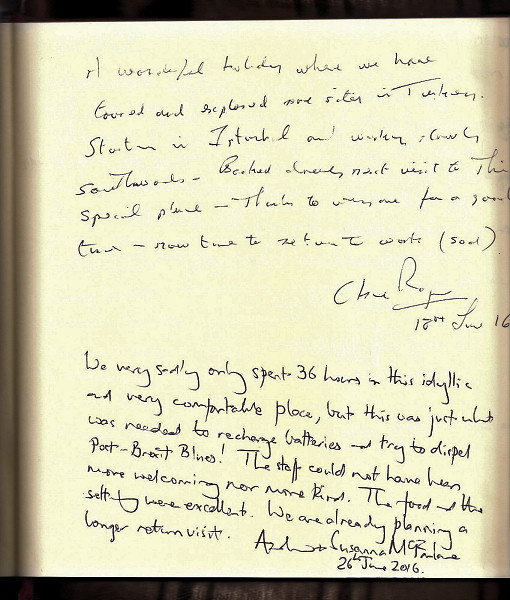 A wonderful holiday where we have
toured and explored more sites in Turkey.
Starting in Istanbul and working slowly
southwards - Booked already next visit to this
special place - Thanks to everyone for a good
time - now time to return to work (sad)
18th June 16
We very sadly only spent 36 hours in this idyllic
and very comfortable place, but this was just what
was needed to recharge batteries and try to dispel
Post-Brexit Blues! The staff could not have been
more welcoming nor more kind. The food and the
setting were excellent. We are already planning a
longer return visit.
Andrew & Susanna McFarlane
26th June 2016.